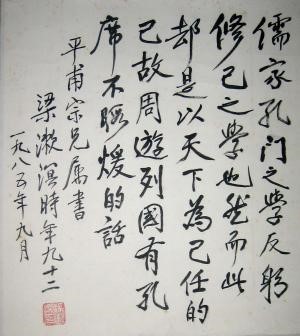 儒家孔門之學反躬
修己之學也然而此
却是以天下為己任的
己故周遊列國有孔
席不暇煖的話
平甫宗兄属書
梁漱溟時年九十二
一九八五年九月